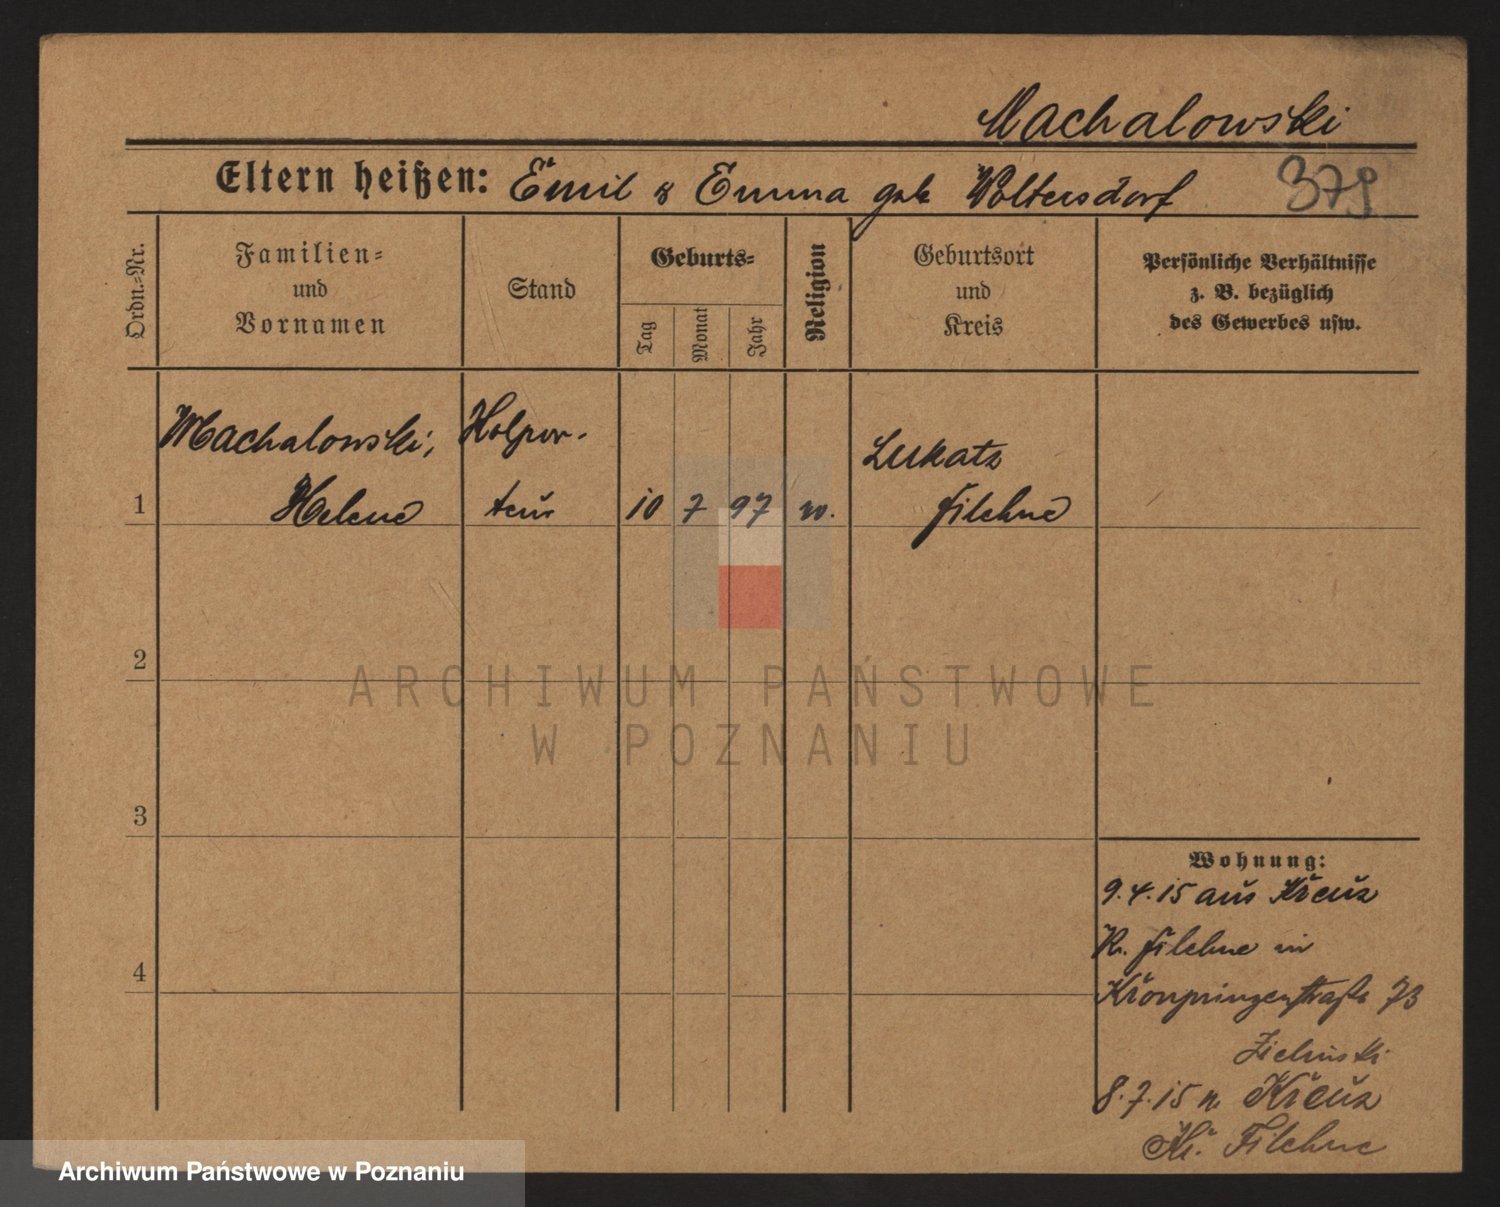 Machalowski
Eltern heißen: Emil & Emma geb Woltersdorf 379
Ordn.-Nr.
Familien- und Vornamen
Stand
Geburts-
Tag
Monat
Jahr
Religion
Geburtsort und Kreis
Persönliche Verhältnisse
z. B. bezüglich
des Gewerbes usw.
Machalowski,
1 Helene
10 7 97
Lukatz
Filehne
2
3
4
Wohnung:
9.4.15 aus Kreuz
Kr. Filehne in
Kronprinzenstraße 73
Zielinski
8.7.15 n. Kreuz
Kr. Filehne
ARCHIWUM PAŃSTWOWE
W POZNANIU
Archiwum Państwowe w Poznaniu